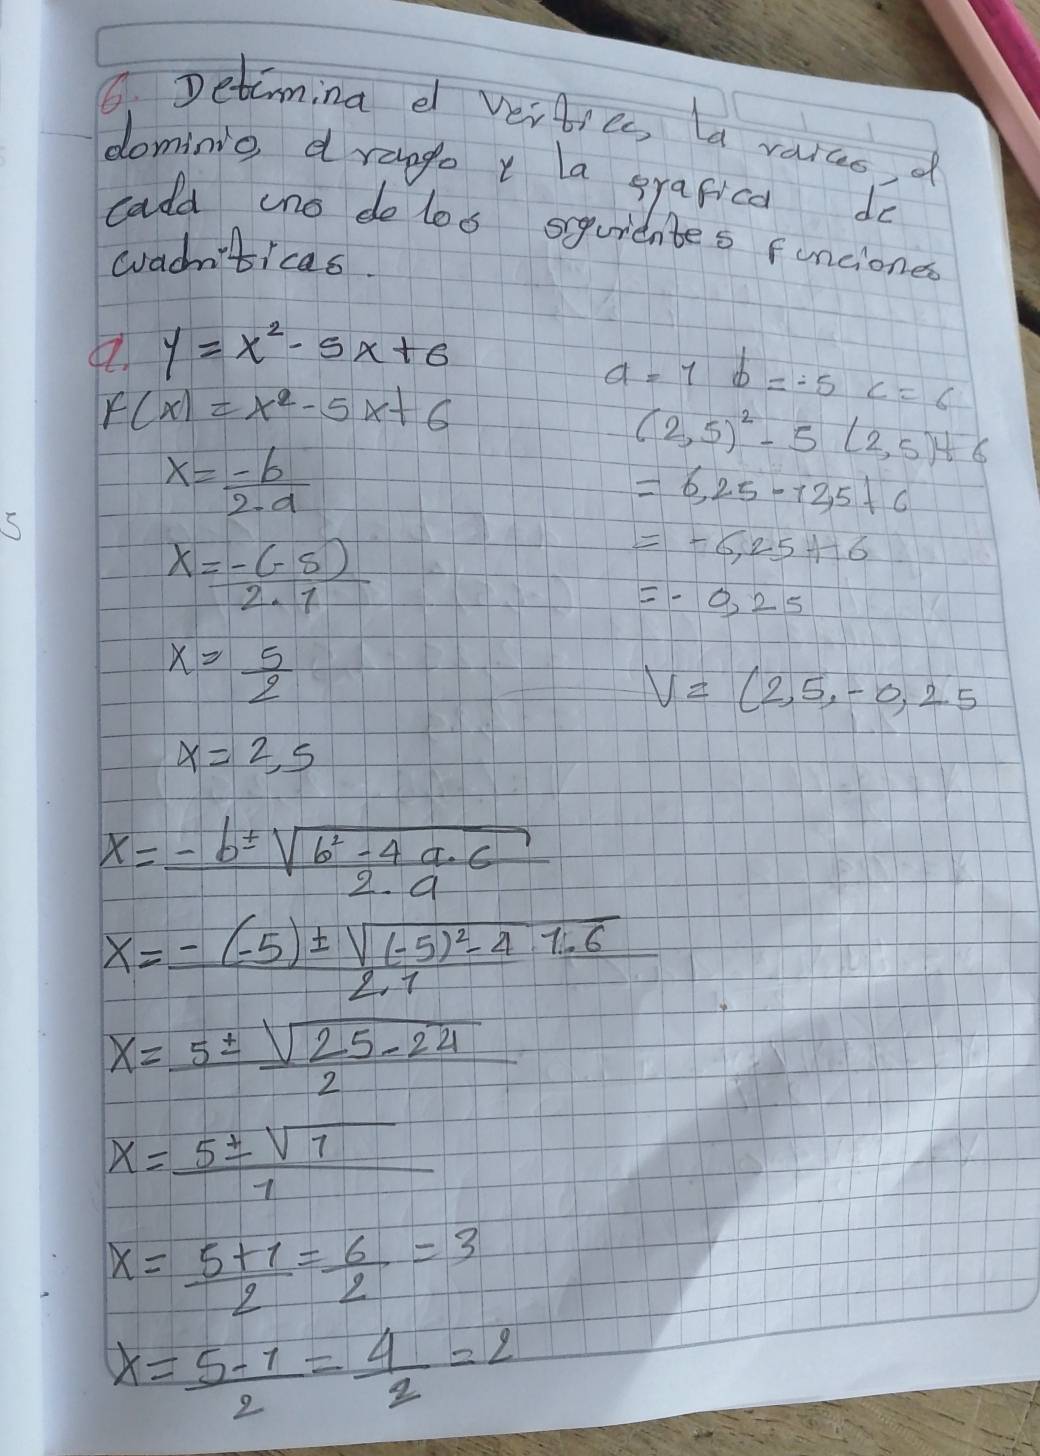 6. Determina el vertice, la raices, el
dominio, el rango y la grafica de
cada uno de los siguientes funciones
cuadraticas.
a. y = x² - 5x + 6
F(x) = x² - 5x + 6
x = -b / 2.a
x = -(-5) / 2.1
x = 5/2
x = 2,5
a = 1 b = -5 c = 6
(2,5)² - 5 (2,5) + 6
= 6,25 - 12,5 + 6
= -6,25 + 6
= - 0,25
V = (2,5, -0,25
x = -b ± √b² - 4 a.c / 2.a
x = -(-5) ± √(-5)² - 4 1.6 / 2.1
x = 5 ± √25 - 24 / 2
x = 5 ± √1 / 1
x = 5+1 / 2 = 6/2 = 3
x = 5-1 / 2 = 4/2 = 2